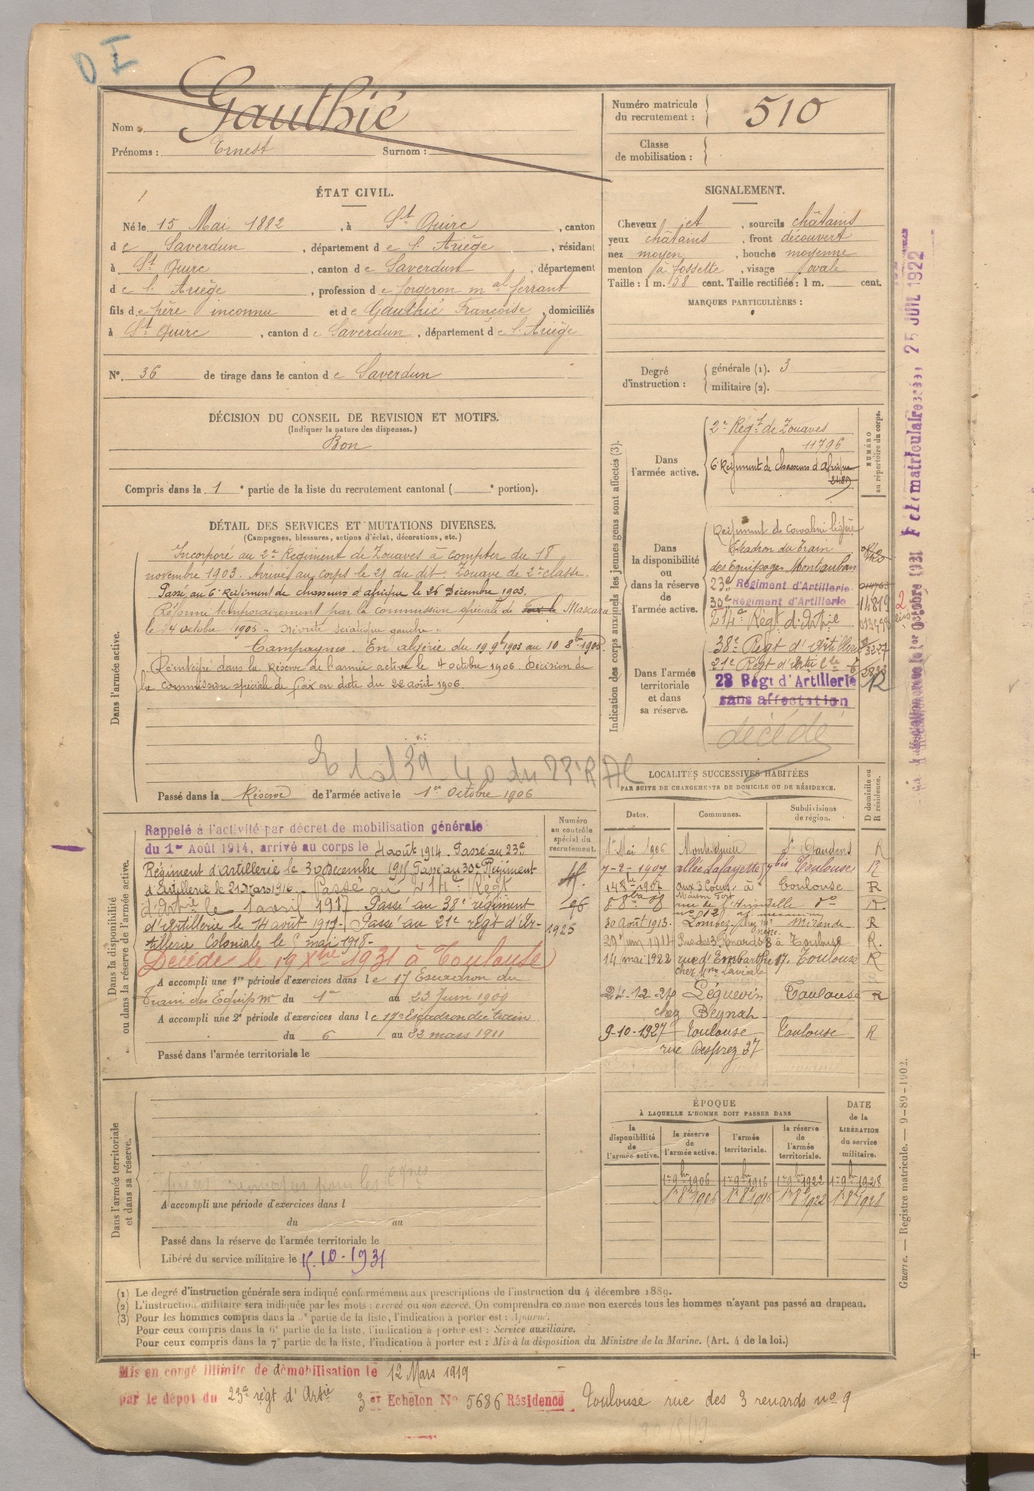 Gauthié
Nom :
Prénoms : Ernest Surnom :
Numéro matricule du recrutement : 510
Classe de mobilisation :
ÉTAT CIVIL.
Né le 15 Mai 1882, à St Quirc, canton
de Saverdun, département de l'Ariège, résidant
à St Quirc, canton de Saverdun, département
de l'Ariège, profession de forgeron mal ferrant
fils de père inconnu et de Gauthié Françoise, domiciliés
à St Quirc, canton de Saverdun, département de l'Ariège
No. 36 de tirage dans le canton de Saverdun
SIGNALEMENT.
Cheveux jet, sourcils châtains
yeux châtains, front découvert
nez moyen, bouche moyenne
menton à fossette, visage ovale
Taille : 1 m. 58 cent. Taille rectifiée : 1 m. cent.
MARQUES PARTICULIÈRES :
Degré d'instruction : générale (1). 3
militaire (2).
DÉCISION DU CONSEIL DE REVISION ET MOTIFS.
(Indiquer la nature des dispenses.)
Bon
Compris dans la 1e partie de la liste du recrutement cantonal ( e portion).
DÉTAIL DES SERVICES ET MUTATIONS DIVERSES.
(Campagnes, blessures, actions d'éclat, décorations, etc.)
Dans l'armée active.
Incorporé au 2e Régiment de Zouaves à compter du 18
novembre 1903. Arrivé au corps le 21 du dit. Zouave de 2e classe.
Passé au 6e Régiment de chasseurs d'afrique le 26 Décembre 1903.
Réformé temporairement par la commission spéciale de Mascara
le 4 octobre 1905 - névrite sciatique gauche.
Campagnes. En algérie du 19 9bre 1903 au 10 8bre 1905
Réintégré dans la Réserve de l'armée active le 4 octobre 1906. Décision de
la Commission spéciale de Foix en date du 22 août 1906.
Passé dans la Réserve de l'armée active le 1er Octobre 1906
Indication des corps auxquels les jeunes gens sont affectés (3).
NUMÉRO au répertoire du corps.
Dans l'armée active.
2e Régt de Zouaves
11796
6e Régiment de chasseurs d'afrique
2489
Dans la disponibilité ou dans la réserve de l'armée active.
Régiment de Cavalerie légère
Escadron du Train
des Equipages Montauban
23e Régiment d'Artillerie
30e Régiment d'Artillerie
214e Régt d'Artrie
Dans l'armée territoriale et dans sa réserve.
38e Régt d'Artillerie
21e Régt d'Artie Cle
23 Régt d'Artillerie
sans affectation
décédé
LOCALITÉS SUCCESSIVES HABITÉES
PAR SUITE DE CHANGEMENTS DE DOMICILE OU DE RÉSIDENCE.
Dates. Communes. Subdivisions de région. D domicile ou R résidence.
1er Mai 1906 St Gaudens R
7-2-1907 allée Lafayette 7 bis Toulouse R
Toulouse R
30 Août 1913 Lombez Mirande R
rue des 3 Renards 8 à Toulouse R.
14 mai 1922 rue d'Embarthe 17. Toulouse R
24-12-24 Léguevin Toulouse R
chez Beynah
9-10-1927 Toulouse Toulouse R
rue Desprez 37
Dans la disponibilité ou dans la réserve de l'armée active.
Numéro au contrôle spécial du recrutement.
Rappelé à l'activité par décret de mobilisation générale
du 1er Août 1914, arrivé au corps le 4 août 1914. Passé au 23e
Régiment d'Artillerie le 30 décembre 1915 Passé au 30e Régiment
d'Artillerie le 21 Mars 1916. Passé au 214e Régt
d'Artrie le 1 avril 1917 Passé au 38e régiment
d'Artillerie le 14 août 1917. Passé au 21e régt d'Ar-
tillerie Coloniale le 2 mai 1918.
1925
Décédé le 19 Xbre 1931 à Toulouse
A accompli une 1re période d'exercices dans le 17 Escadron du
Train des Equip. du 1er au 23 Juin 1909
A accompli une 2e période d'exercices dans le 17e Escadron du train
du 6 au 22 mars 1911
Passé dans l'armée territoriale le
Dans l'armée territoriale et dans sa réserve.
A accompli une période d'exercices dans l
du au
Passé dans la réserve de l'armée territoriale le
Libéré du service militaire le 15.10-1931
ÉPOQUE
À LAQUELLE L'HOMME DOIT PASSER DANS
la disponibilité de l'armée active. la réserve de l'armée active. l'armée territoriale. la réserve de l'armée territoriale.
DATE de la LIBÉRATION du service militaire.
1er 9bre 1906 1er 9bre 1916 1er 9bre 1922 1er 9bre 1928
1er 8bre 1906 1er 8bre 1916 1er 8bre 1922 1er 8bre 1928
25 JUIL 1922
Guerre. — Registre matricule. — 9-89-1902.
(1) Le degré d'instruction générale sera indiqué conformément aux prescriptions de l'instruction du 4 décembre 1889.
(2) L'instruction militaire sera indiquée par les mots : exercé ou non exercé. On comprendra comme non exercés tous les hommes n'ayant pas passé au drapeau.
(3) Pour les hommes compris dans la partie de la liste, l'indication à porter est : Ajourné.
Pour ceux compris dans la 6e partie de la liste, l'indication à porter est : Service auxiliaire.
Pour ceux compris dans la 7e partie de la liste, l'indication à porter est : Mis à la disposition du Ministre de la Marine. (Art. 4 de la loi.)
Mis en congé illimité de démobilisation le 12 Mars 1919
par le dépôt du 23e régt d'Artie 3 er Echelon No 5686 Résidence Toulouse rue des 3 renards no 9